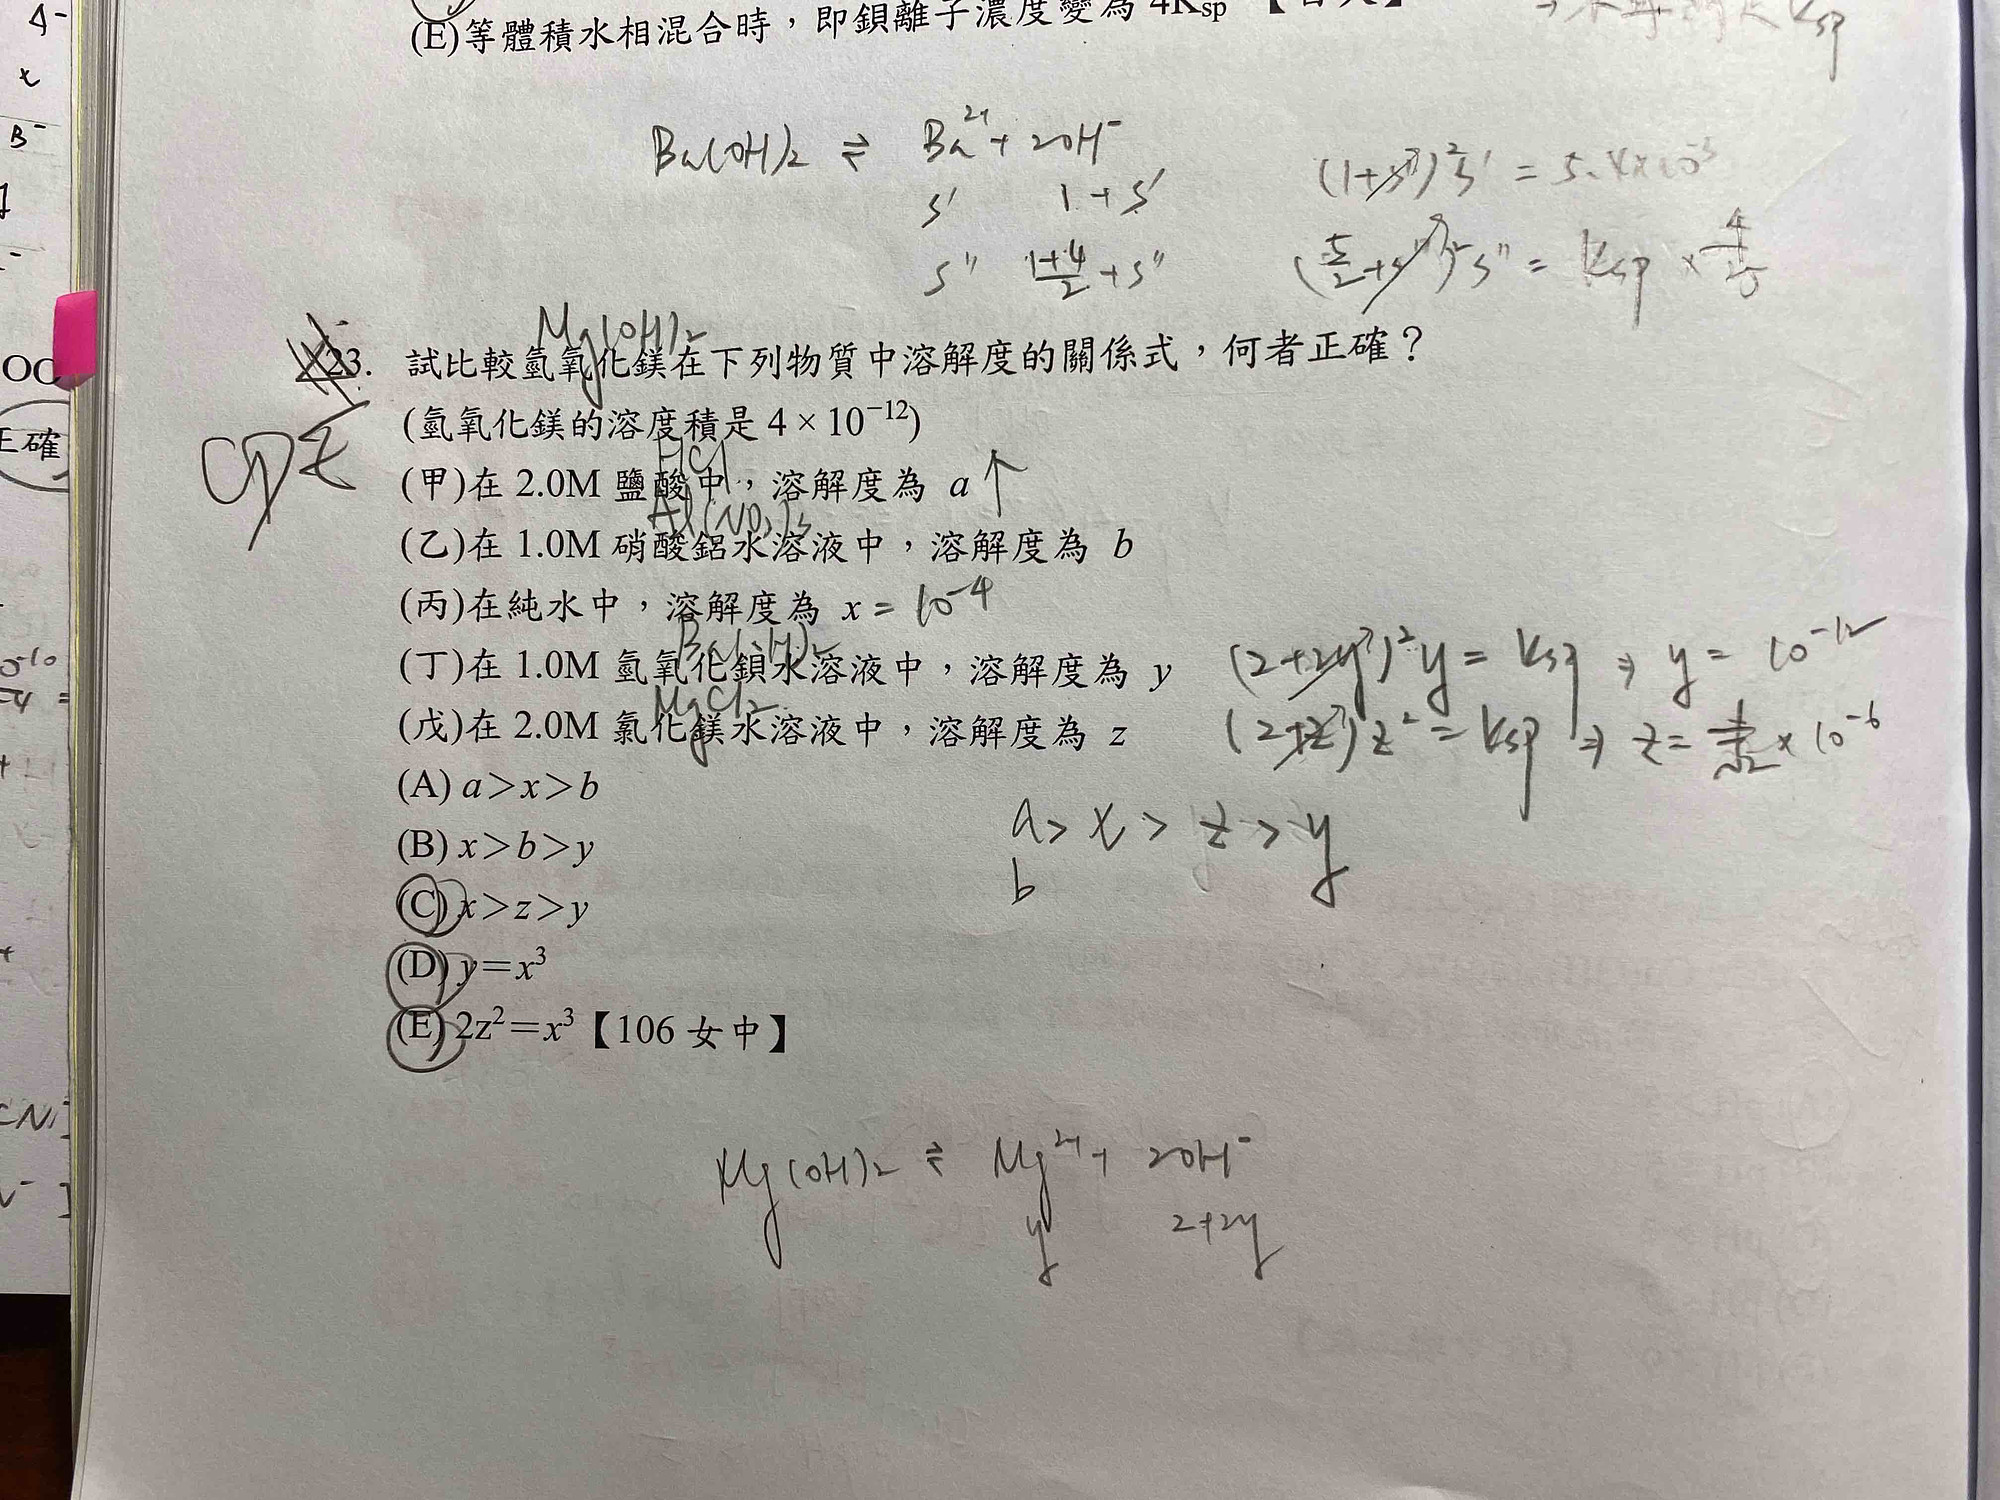 (E)等體積水相混合時，即鋇離子濃度變為 4Ksp
Ksp
Ba(OH)₂ ⇌ Ba²⁺ + 2OH⁻
s' 1+s'
(1+s')²s' = 5.4×10⁻³
s'' (1+4)/2+s''
(5/2+s'')²s'' = Ksp × 4/25
Mg(OH)₂
23. 試比較氫氧化鎂在下列物質中溶解度的關係式，何者正確？
(氫氧化鎂的溶度積是 4 × 10⁻¹²)
HCl
(甲)在 2.0M 鹽酸中，溶解度為 a ↑
Al(NO₃)₃
(乙)在 1.0M 硝酸鋁水溶液中，溶解度為 b
(丙)在純水中，溶解度為 x = 10⁻⁴
Ba(OH)₂
(丁)在 1.0M 氫氧化鋇水溶液中，溶解度為 y (2+2y)²y = Ksp ⇒ y = 10⁻¹²
MgCl₂
(戊)在 2.0M 氯化鎂水溶液中，溶解度為 z (2+z)z² = Ksp ⇒ z =
× 10⁻⁶
(A) a＞x＞b
a > x > z > y
(B) x＞b＞y
b
(C) x＞z＞y
(D) y＝x³
(E) 2z²＝x³【106 女中】
Mg(OH)₂ ⇌ Mg²⁺ + 2OH⁻
y 2+2y
正確
A⁻
B⁻